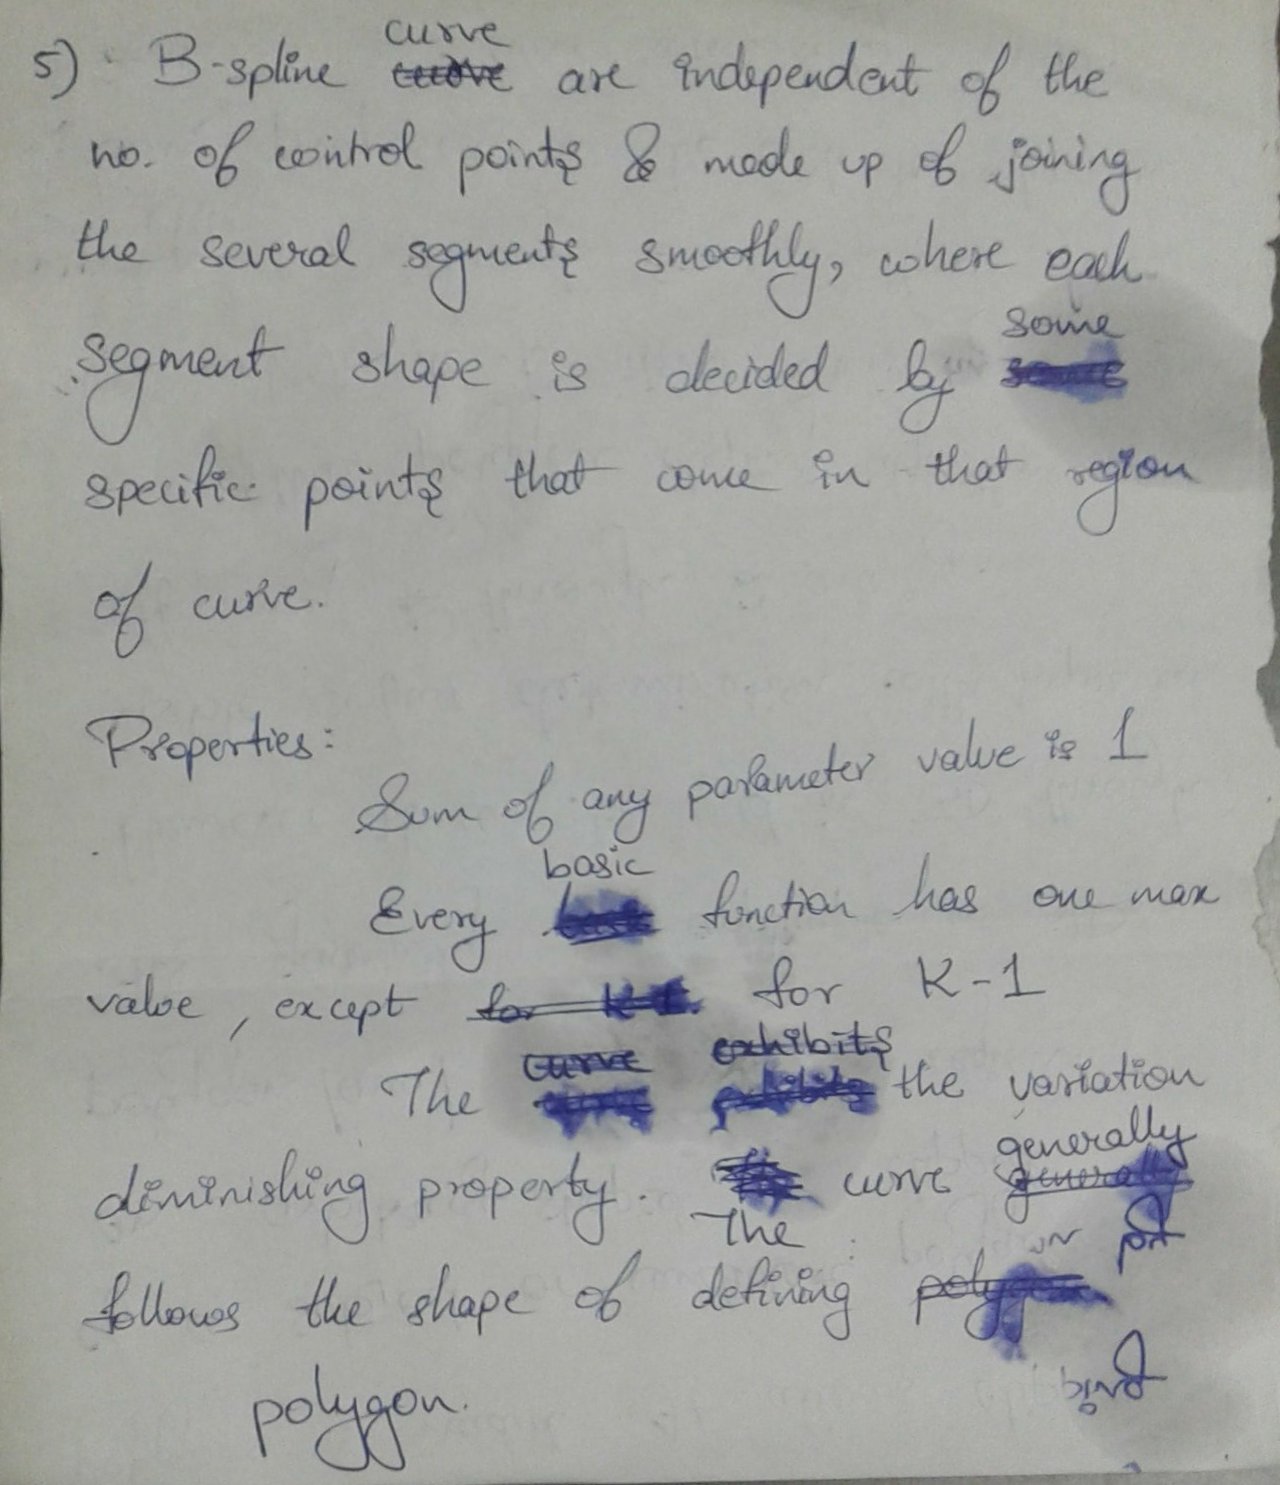 5) B-spline curve are independent of the
no. of control points & made up of joining
the several segments smoothly, where each
segment shape is decided by some
specific points that come in that region
of curve.
Properties:
Sum of any parameter value is 1
Every basic function has one max
value, except for K-1
The curve exhibits the variation
diminishing property. The curve generally
follows the shape of defining
polygon.